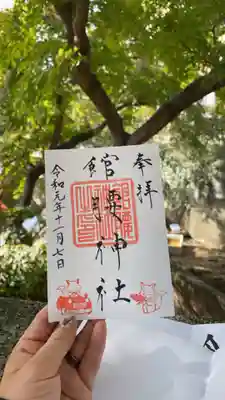 奉拝
館腰神社
令和元年十一月七日